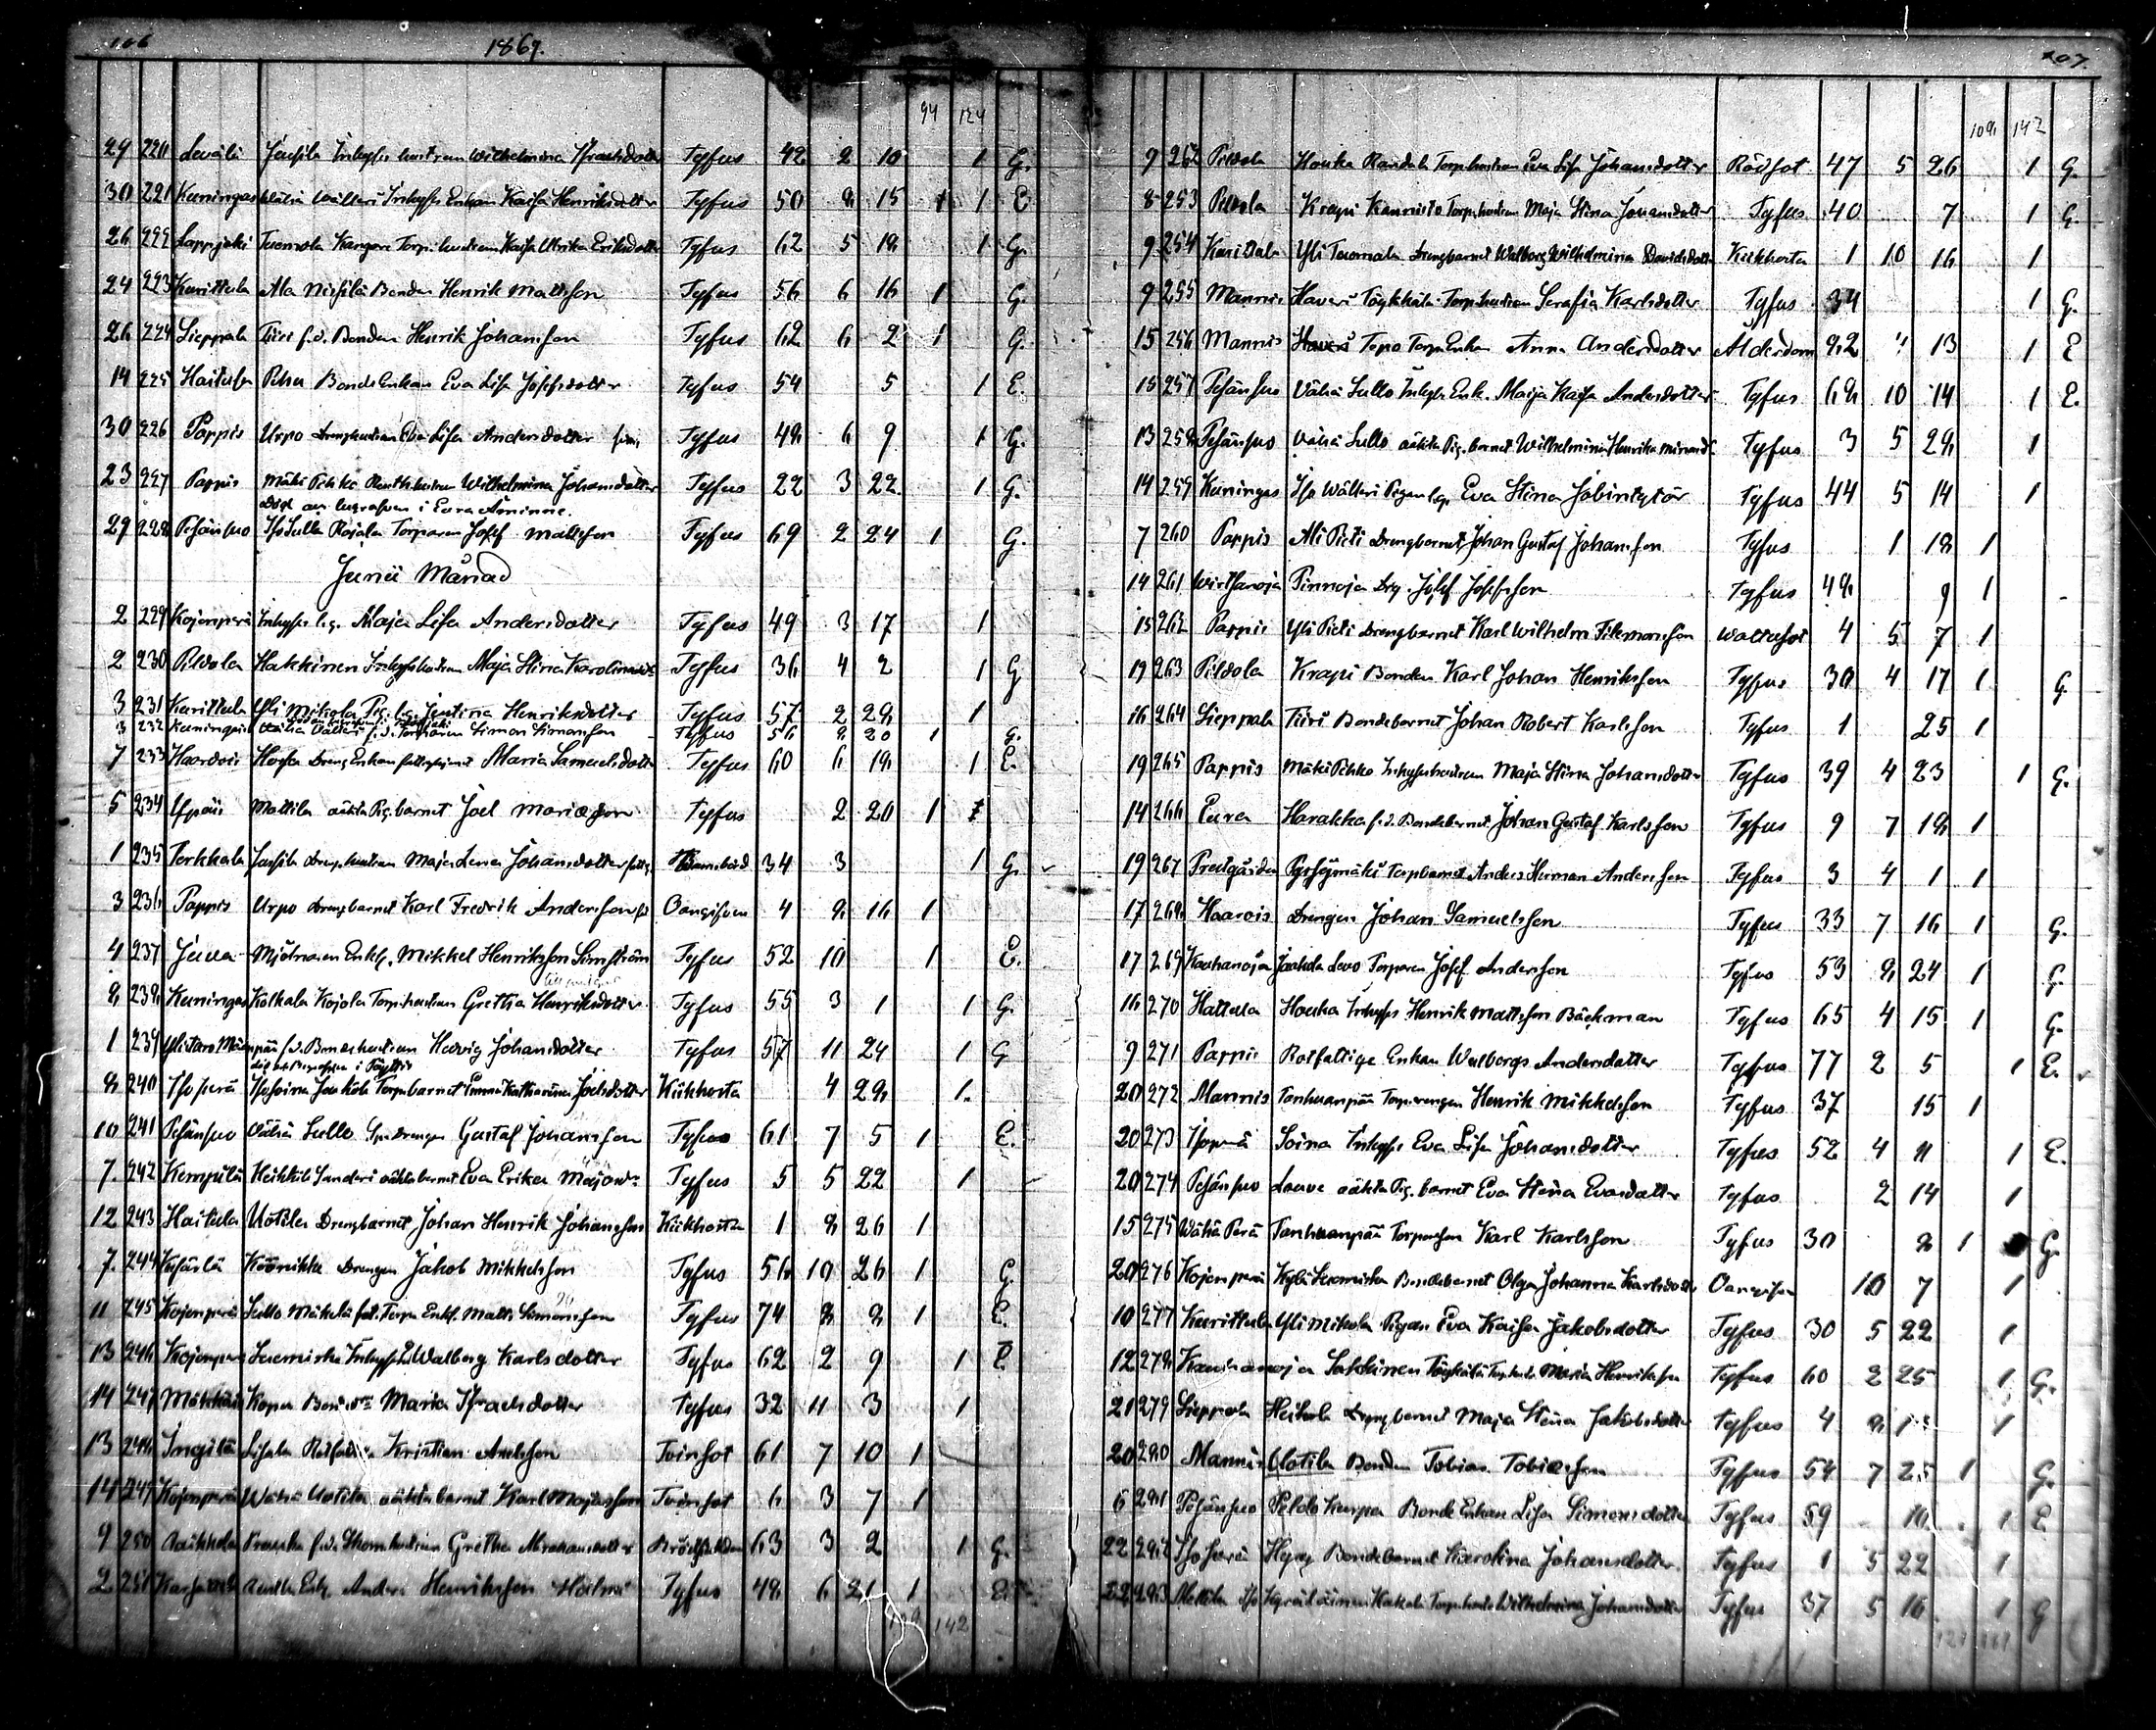 106
1867.
94 124
29 220 Levälä Jausila Inhyses hustrun Wilhelmina Israelsdotter Tyfus 42 2 10 1 G.
30 221 Kuningas Wähä Wälläri Inhyses Enkan Kaisa Henriksdotter Tyfus 50 8 15 1 E
26 222 Lappijoki Tuomola Kangare Torp. hustrun Kaisa Ulrika Eriksdotter Tyfus 62 5 18 1 G.
24 223 Kurittula Ala Nissilä Bonden Henrik Mattsson Tyfus 56 6 16 1 G.
26 224 Lieppala Tiiri f.d. Bonden Henrik Johansson Tyfus 62 6 2 1 G.
14 225 Haitula Bonde Enkan Eva Lisa Josefsdotter Tyfus 54 5 1 E.
30 226 Pappis Urpo Drenghustrun Eva Lisa Andersdotter Tyfus 48 6 9 1 G.
23 227 Pappis Mäki Pikko Wilhelmina Johansdotter Tyfus 22 3 22 1 G.
i Eura Åminne.
29 228 Pesänsuo Iso Sullo Rajala Torparen Josef Mattsson Tyfus 69 2 24 1 G.
Junii Månad
2 229 Kojonperä Inhyses Maja Lisa Andersdotter Tyfus 49 3 17 1
2 230 Pildola Hakkinen Inhyses hustrun Maja Stina Karolinasd. Tyfus 36 4 2 1 G
3 231 Kurittula Yli Mikola Pig. Justina Henriksdotter Tyfus 57 2 28 1
3 232 Kuningas Wähä Wälläri f.d. Torparen Simon Simonsson Tyfus 56 8 20 1 G.
7 233 Haarois Enkan Maria Samuelsdotter Tyfus 60 6 18 1 E.
5 234 Ypäjä Mattila oäkta Pig. barnet Joel Mariæson Tyfus 2 20 1
1 235 Terkkala Jausila drenghustrun Maja Lena Johansdotter Barnsbörd 34 3 1 G.
3 236 Pappis Urpo drengbarnet Karl Fredrik Andersson Oangifven 4 8 16 1
4 237 Mjölnaren Enkl. Mikkel Henriksson Tyfus 52 10 1 E.
8 238 Kuningas Kolkala Kojola Torp. hustrun Gretha Henriksdotter Tyfus 55 3 1 1 G.
1 239 f.d. Bondehustrun Hedvig Johansdotter Tyfus 57 11 24 1 G
8 240 Isoperä Iso Soina Torparebarnet Emma Katharina Joelsdotter Kikhosta 4 28 1.
10 241 Pesänsuo Wähä Sullo drengen Gustaf Johansson Tyfus 61 7 5 1 E.
7. 242 Kempilä Heikkilä oäkta barnet Eva Erika Majasd. Tyfus 5 5 22 1
12 243 Haitula Uotila Drengbarnet Johan Henrik Johansson Kikhosta 1 8 26 1
7. 244 Köönikkä Drengen Jakob Mikkelsson Tyfus 56 10 26 1 G.
11 245 Kojonperä Sullo Mäkelä Torp. Enkl. Matts Simonsson Tyfus 74 8 8 1 E.
13 246 Kojonperä Inhyses Walborg Karlsdotter Tyfus 62 2 9 1 E.
14 247 Maria Israelsdotter Tyfus 32 11 3 1
13 248 Ingilä Kristian Tvinsot 61 7 10 1
14 249 Kojonperä Wähä Uotila oäkta barnet Karl Majasson Tvinsot 6 3 7 1
9 250 hustrun Gretha Abrahamsdotter 63 3 2 1 G.
2 251 Enkl. Anders Henriksson Tyfus 48 6 21 1 E.
142
107.
108 142
9 252 Pildola Houka Randala Torp. hustrun Eva Lisa Johansdotter Rödsot 47 5 26 1 G.
8 253 Pildola Krapi Kannisto Torp. hustrun Maja Stina Johansdotter Tyfus 40 7 1 G.
9 254 Kurittula Yli Tuomola Drengbarnet Walborg Wilhelmina Davidsdotter Kikhosta 1 10 16 1
9 255 Mannis Haveri Töykkälä Torp. hustrun Serafia Karlsdotter Tyfus 34 1 G.
15 256 Mannis Topo Torp. Enkan Anna Andersdotter Ålderdom 82 13 1 E
15 257 Pesänsuo Wähä Sullo Inhyses Enk. Maija Kaisa Andersdotter Tyfus 68 10 14 1 E.
13 258 Pesänsuo Wähä Sullo oäkta Pig. barnet Wilhelmina Henrika Tyfus 3 5 28 1
14 259 Kuningas Iso Wälläri Pigan Eva Stina Tyfus 44 5 14 1
7 260 Pappis Ali Pieti Drengbarnet Johan Gustaf Johansson Tyfus 1 18 1
14 261 Wirtsanoja Pinnoja Drg. Josef Josefsson Tyfus 48 9 1
15 262 Pappis Yli Pieti Drengbarnet Karl Wilhelm Filemonsson Wattusot 4 5 7 1
19 263 Pildola Krapi Bonden Karl Johan Henriksson Tyfus 30 4 17 1 G
16 264 Lieppala Tiiri Bondebarnet Johan Robert Karlsson Tyfus 1 25 1
19 265 Pappis Mäki Pikko Inhyses hustrun Maja Stina Johansdotter Tyfus 39 4 23 1 G.
14 266 Eura Harakka f.d. Bondebarnet Johan Gustaf Karlsson Tyfus 9 7 18 1
19 267 Prestgården Pyssymäki Torp. barnet Anders Herman Andersson Tyfus 3 4 1 1
17 268 Haarois Drengen Johan Samuelsson Tyfus 33 7 16 1 G.
17 269 Kauhanoja Jaakola Levo Torparen Josef Andersson Tyfus 53 8 24 1 G.
16 270 Hattula Houka Inhyses Henrik Mattsson Bäckman Tyfus 65 4 15 1 G.
9 271 Pappis Rotfattige Enkan Walborg Andersdotter Tyfus 77 2 5 1 E.
20 272 Mannis Tanhuanpää Torp. drengen Henrik Mikkelsson Tyfus 37 15 1
20 273 Isoperä Soina Inhyses Eva Lisa Johansdotter Tyfus 52 4 11 1 E.
20 274 Pesänsuo Louve oäkta Pig. barnet Eva Stina Evasdotter Tyfus 2 14 1
15 275 Wähä Perä Tanhuanpää Torparesson Karl Karlsson Tyfus 30 8 1 G.
20 276 Kojonperä Kylä Bondebarnet Olga Johanna Karlsdotter Oangifven 10 7 1
10 277 Kurittula Yli Mikola Pigan Eva Kaisa Jakobsdotter Tyfus 30 5 22 1
12 278 Kauhanoja Sakkinen Töykkälä Maria Tyfus 60 2 25 1 G.
21 279 Lieppala Heikola Drengbarnet Maja Stina Jakobsdotter Tyfus 4 8 1
20 280 Mannis Uotila Bonden Tobias Tobiæson Tyfus 54 7 25 1 G.
6 281 Pesänsuo Peldo Bonde Enkan Lisa Simonsdotter Tyfus 59 1 E
22 282 Isoperä Bondebarnet Karolina Johansdotter Tyfus 1 5 22 1
22 283 Mattila Wilhelmina Johansdotter Tyfus 37 5 16 1 G